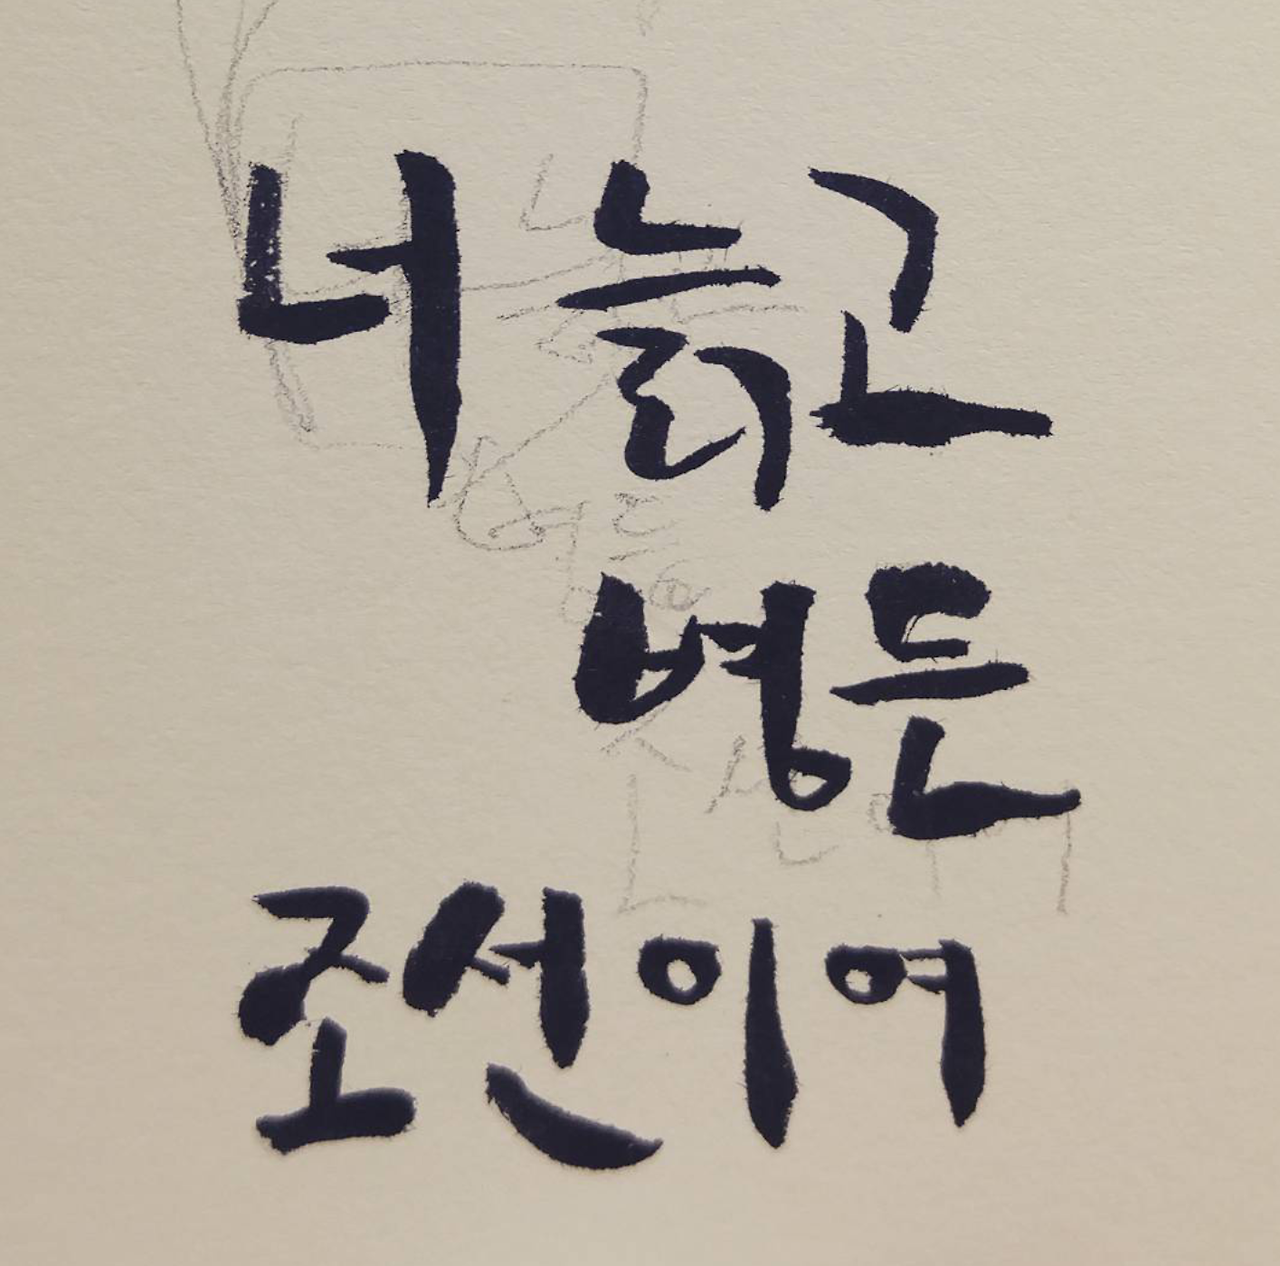 너 늙고
병든
조선이여